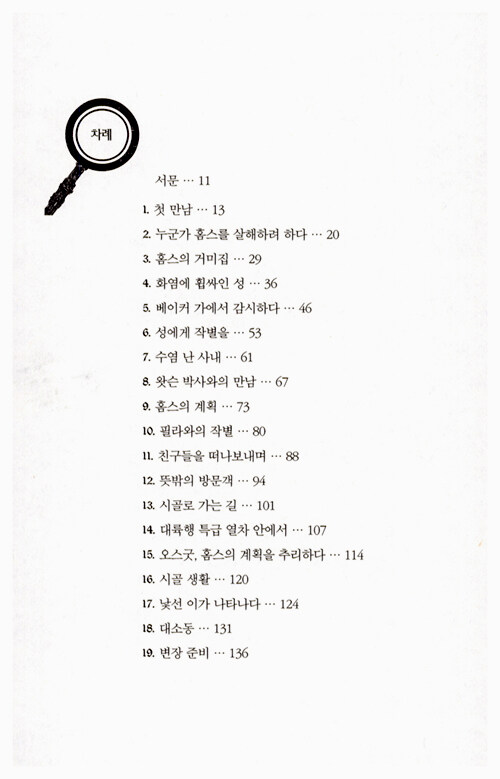 차례
서문 … 11
1. 첫 만남 … 13
2. 누군가 홈스를 살해하려 하다 … 20
3. 홈스의 거미집 … 29
4. 화염에 휩싸인 성 … 36
5. 베이커 가에서 감시하다 … 46
6. 성에게 작별을 … 53
7. 수염 난 사내 … 61
8. 왓슨 박사와의 만남 … 67
9. 홈스의 계획 … 73
10. 필라와의 작별 … 80
11. 친구들을 떠나보내며 … 88
12. 뜻밖의 방문객 … 94
13. 시골로 가는 길 … 101
14. 대륙행 특급 열차 안에서 … 107
15. 오스굿, 홈스의 계획을 추리하다 … 114
16. 시골 생활 … 120
17. 낯선 이가 나타나다 … 124
18. 대소동 … 131
19. 변장 준비 … 136